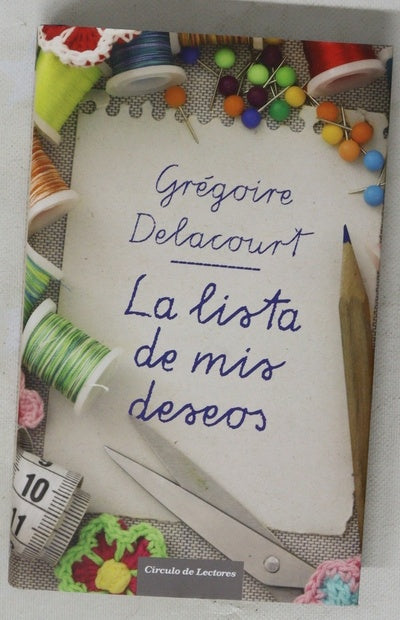 Grégoire
Delacourt
La lista
de mis
deseos
10
11
Círculo de Lectores